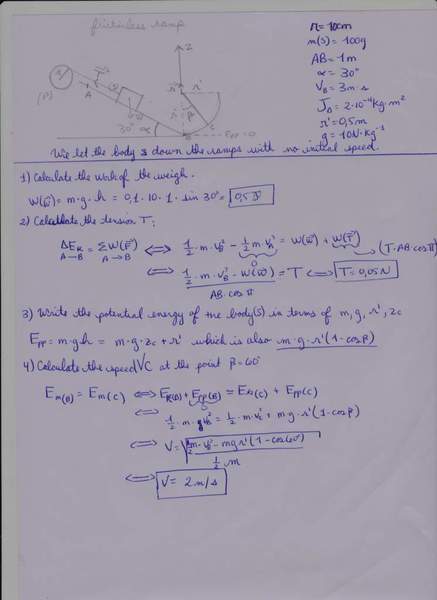 frictionless ramp
r = 10cm
m(S) = 100g
AB = 1m
α = 30°
V_B = 3m·s
J_Δ = 2·10⁻⁴kg·m²
r' = 0,5m
g = 10N·kg⁻¹
Z
T
r'
(P)
A
β
30°
α
B
C
E_PP = 0
We let the body s down the ramps with no initial speed.
1) Calculate the work of the weigh.
W(ω⃗) = m·g·h = 0,1·10·1·sin 30° = 0,5J
2) Calculate the tension T:
ΔE_K = ΣW(F⃗) ⟺ ½·m·V_B² - ½·m·V_A² = W(ω⃗) + W(T⃗)
A→B A→B 0 (T·AB·cos π)
⟺ ½·m·V_B² - W(ω⃗) = T ⟺ T = 0,05N
AB·cos π
3) Write the potential energy of the body(s) in terms of m, g, r', zc
E_PP = m·g·h = m·g·zc + r' which is also m·g·r'(1-cosβ)
4) Calculate the speed VC at the point β = 60°
E_m(B) = E_m(C) ⟺ E_K(B) + E_PP(B) = E_K(C) + E_PP(C)
⟺ ½·m·V_B² = ½·m·V_C² + m·g·r'(1-cosβ)
⟺ V = √ ½m·V_B² - mgr'(1-cos60°)
½m
⟺ V = 2m/s